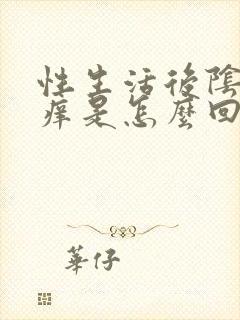 性生活後陰
痒是怎麼回
華仔